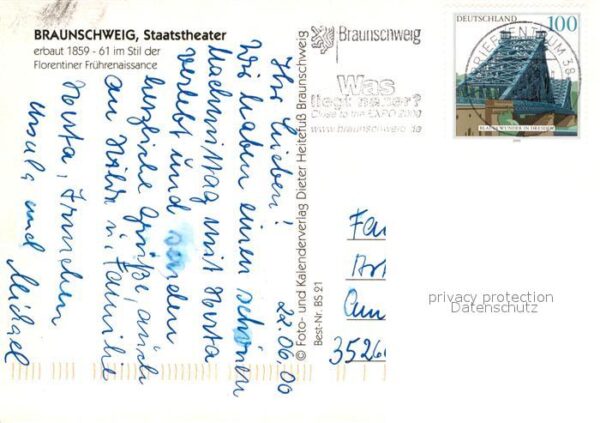 BRAUNSCHWEIG, Staatstheater
erbaut 1859 - 61 im Stil der
Florentiner Frührenaissance
22.06.00
Ihr Lieben!
Wir haben einen schönen
Nachmittag mit Herta
verlebt und senden
herzliche Grüße, auch
an Hilde u. Familie
Herta, Irmchen
Ursula und Michael
© Foto- und Kalenderverlag Dieter Heitefuß Braunschweig
Best-Nr. BS 21
Braunschweig
Was
liegt naeher?
Close to the EXPO 2000
www.braunschweig.de
DEUTSCHLAND 100
BRIEFZENTRUM 38
BLAUES WUNDER IN DRESDEN
2000
Fam
Cum
3526
privacy protection
Datenschutz